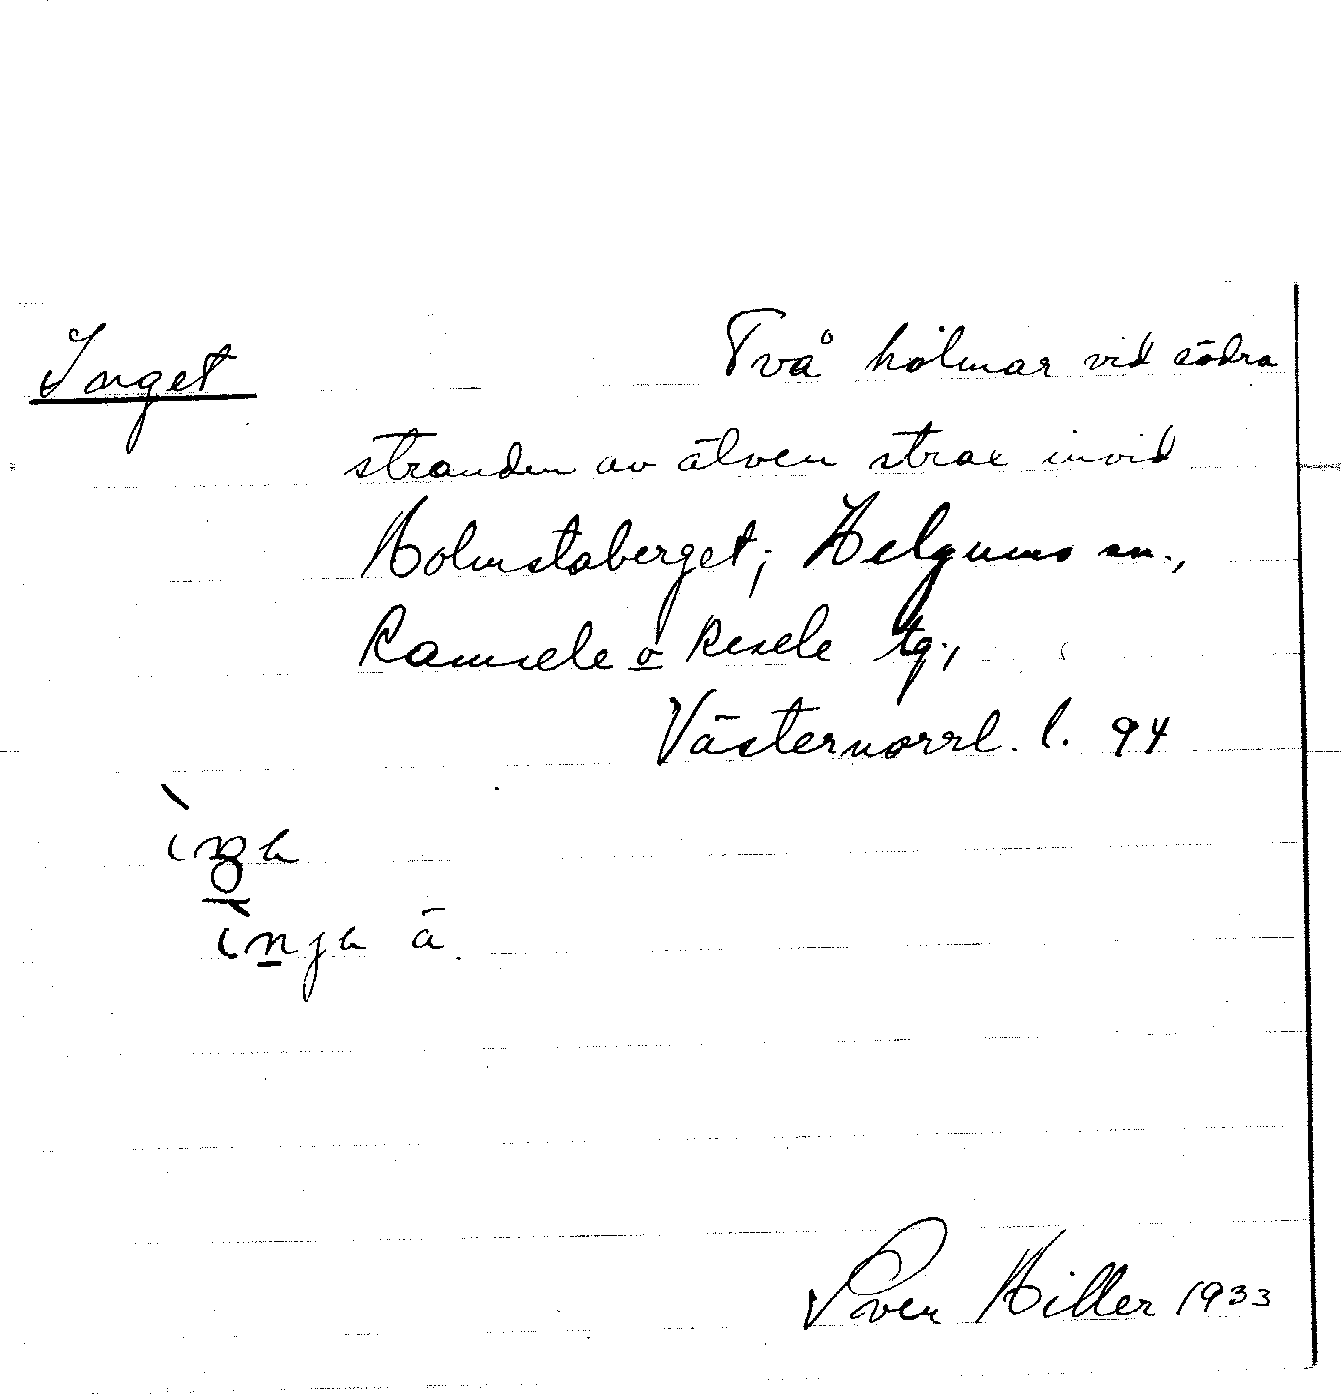 Inget Två holmar vid södra
stranden av älven strax invid
Holmstaberget; Helgums sn.,
Ramsele o Resele tg.,
Västernorrl. l. 94
ä.
Sven Hiller 1933